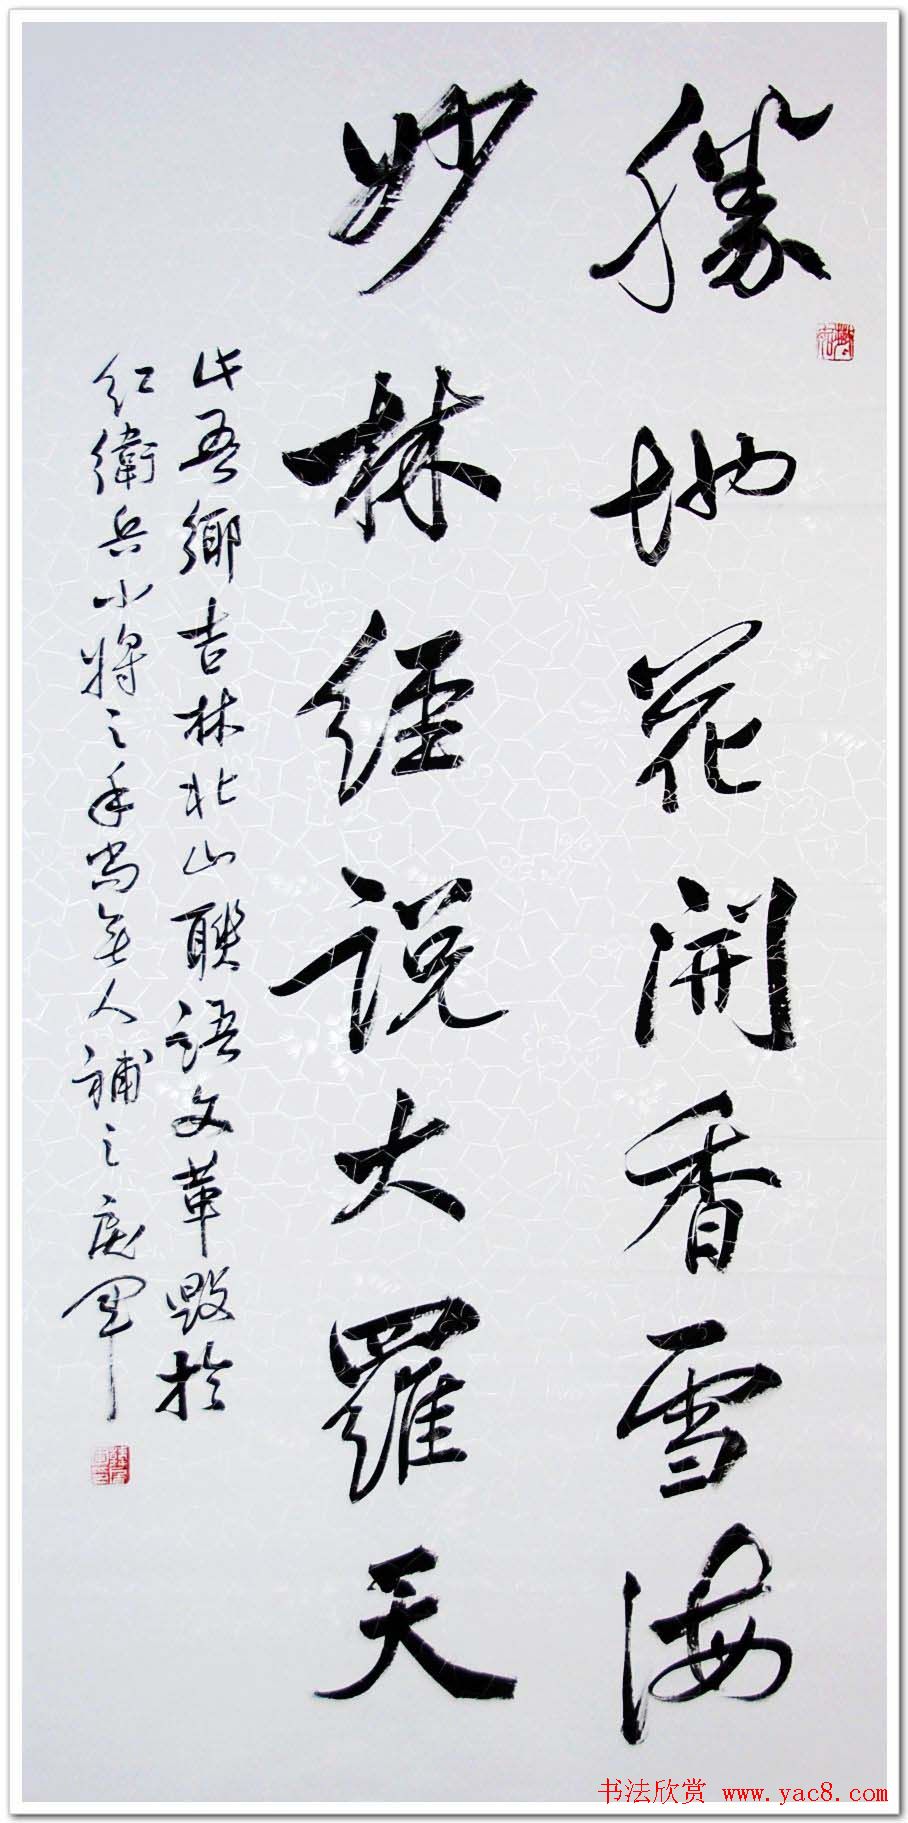 勝地花開香雪海
妙林经说大羅天
此吾鄉吉林北山聯語文革毁於
红衛兵小将之手尚无人補之庭军
书法欣赏 www.yac8.com